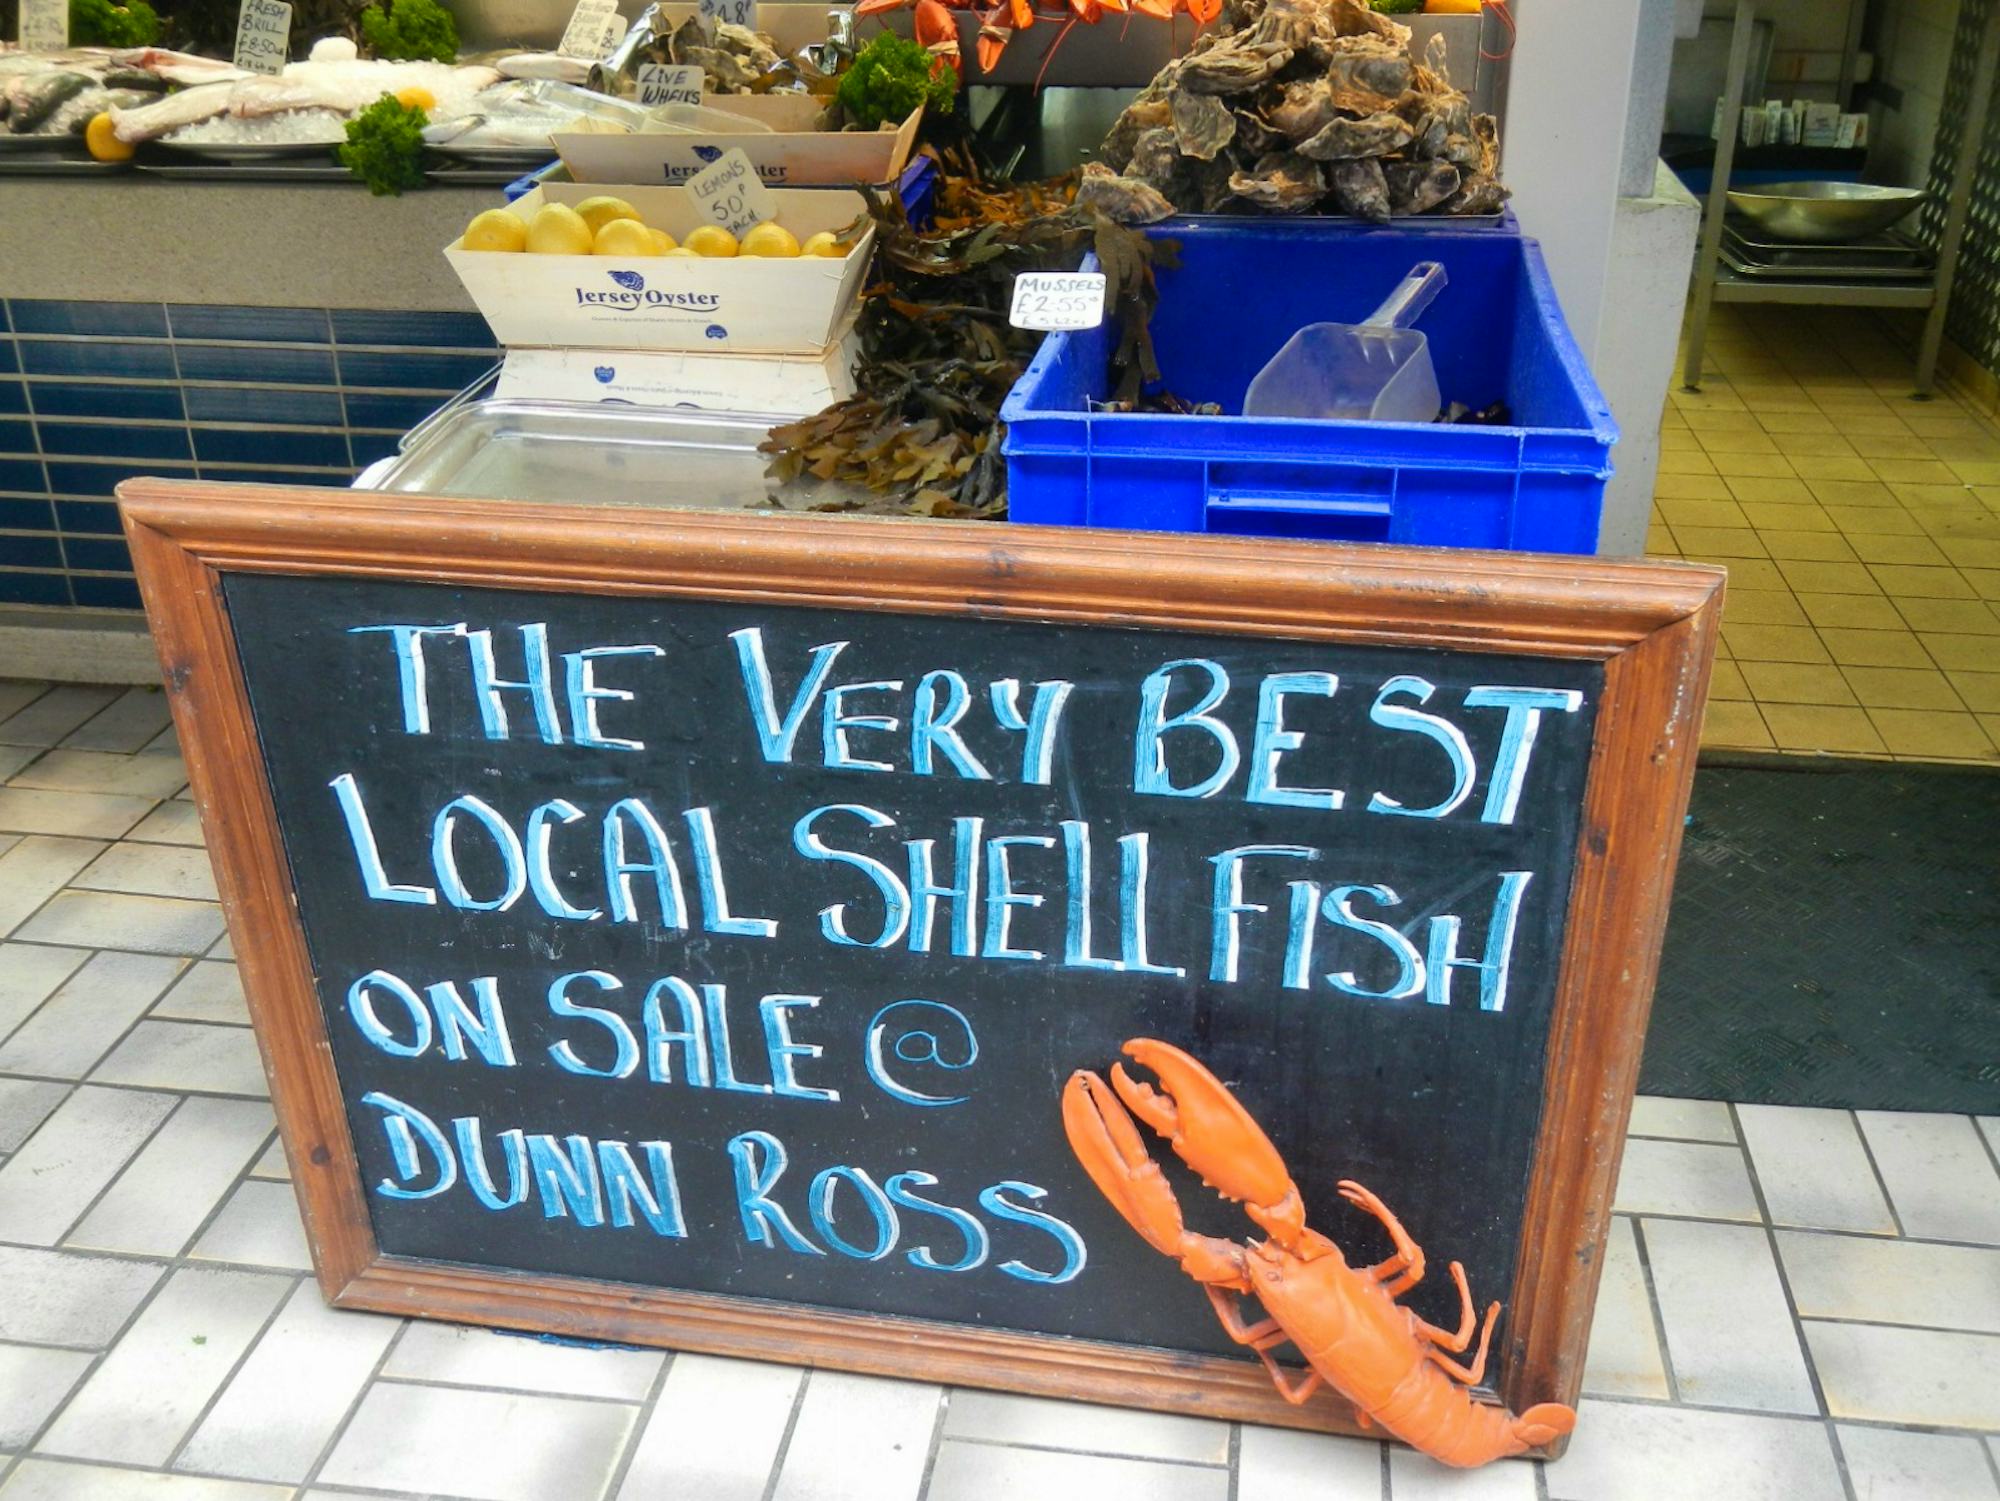 FRESH
BRILL
£8.50
LIVE
WHELKS
Jersey
LEMONS
50P
EACH
Jersey Oyster
MUSSELS
£2.55
THE VERY BEST
LOCAL SHELLFISH
ON SALE @
DUNN ROSS